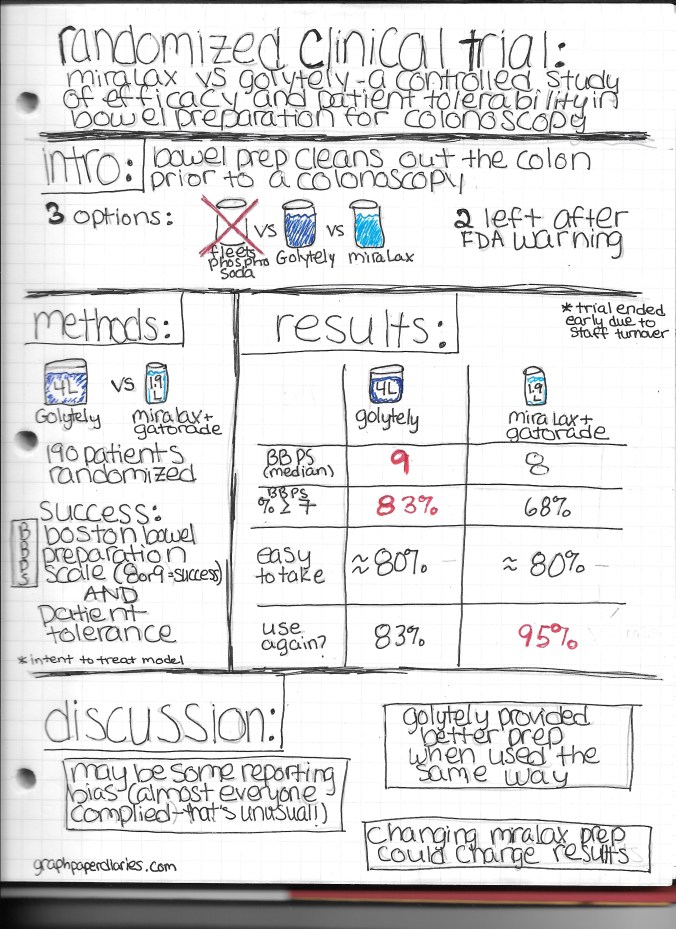 randomized clinical trial:
miralax vs golytely - a controlled study
of efficacy and patient tolerability in
bowel preparation for colonoscopy
intro:
bowel prep cleans out the colon
prior to a colonoscopy
3 options:
fleets
phospho
soda
vs
Golytely
vs
miralax
2 left after
FDA warning
methods:
4L
vs
1.9
L
Golytely
miralax+
gatorade
190 patients
randomized
success:
BBPS
boston bowel
preparation
scale (8 or 9 = success)
AND
patient
tolerance
*intent to treat model
results:
*trial ended
early due to
staff turnover
4L
golytely
1.9
L
miralax+
gatorade
BBPS
(median)
9
8
BBPS
% ≥ 7
83%
68%
easy
to take
≈80%
≈80%
use
again?
83%
95%
discussion:
may be some reporting
bias (almost everyone
complied-that's unusual!)
golytely provided
better prep
when used the
same way
changing mralax prep
could change results
graphpaperdiaries.com